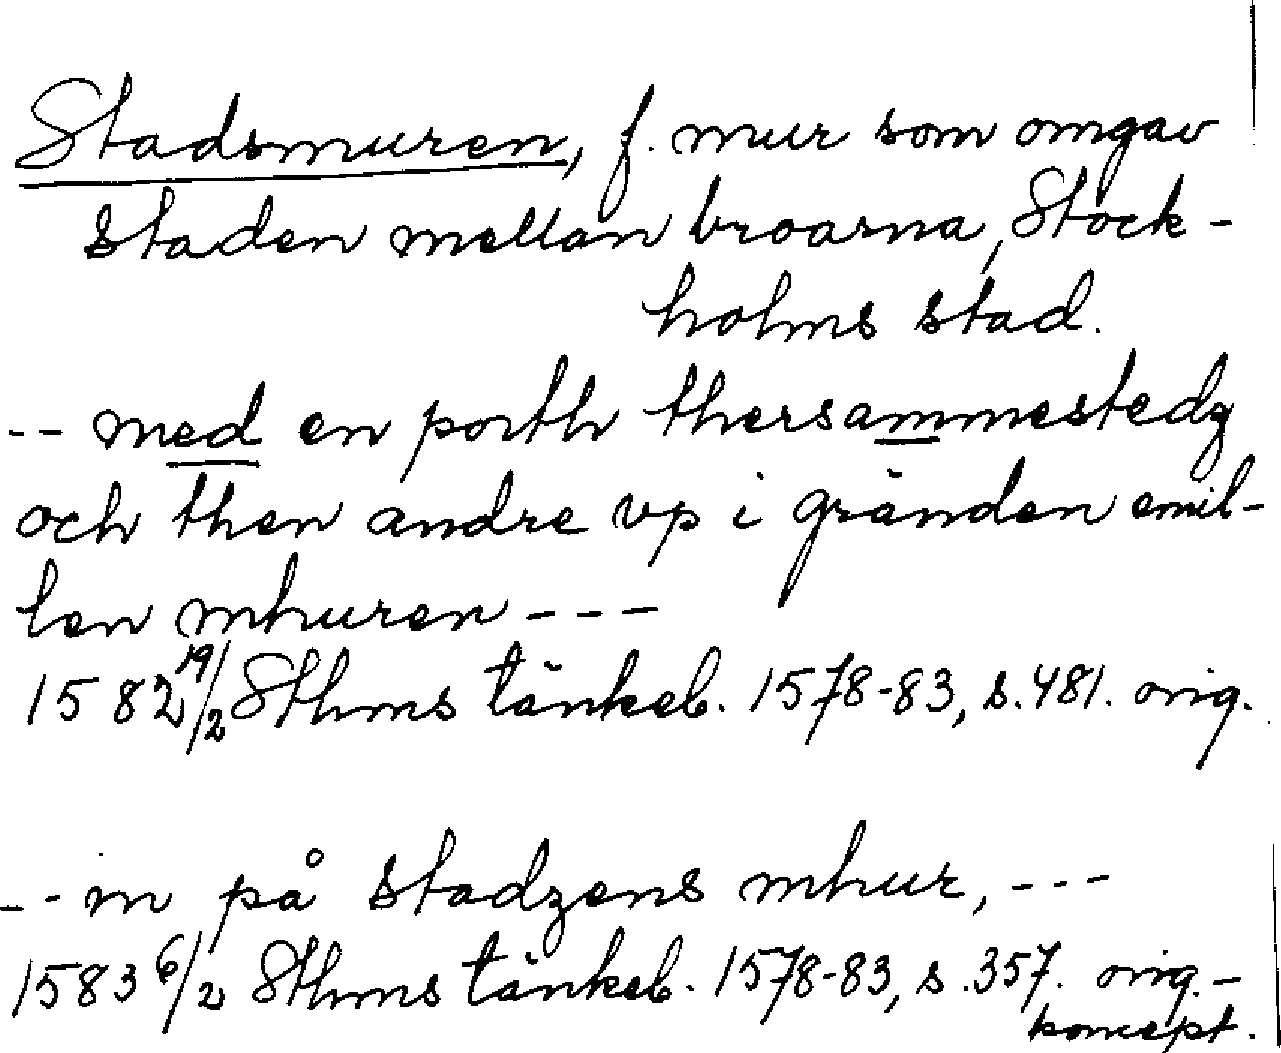 Stadsmuren, f. mur som omgav
staden mellan broarna, Stock-
holms stad.
-- med en porth thersammestedz
och then andre vp i gränden emil-
len mhuren ---
1582 19/2 Sthms tänkeb. 1578-83, s. 481. orig.
-- in på stadzens mhur, ---
1583 6/2 Sthms tänkeb. 1578-83, s. 357. orig.-
koncept.